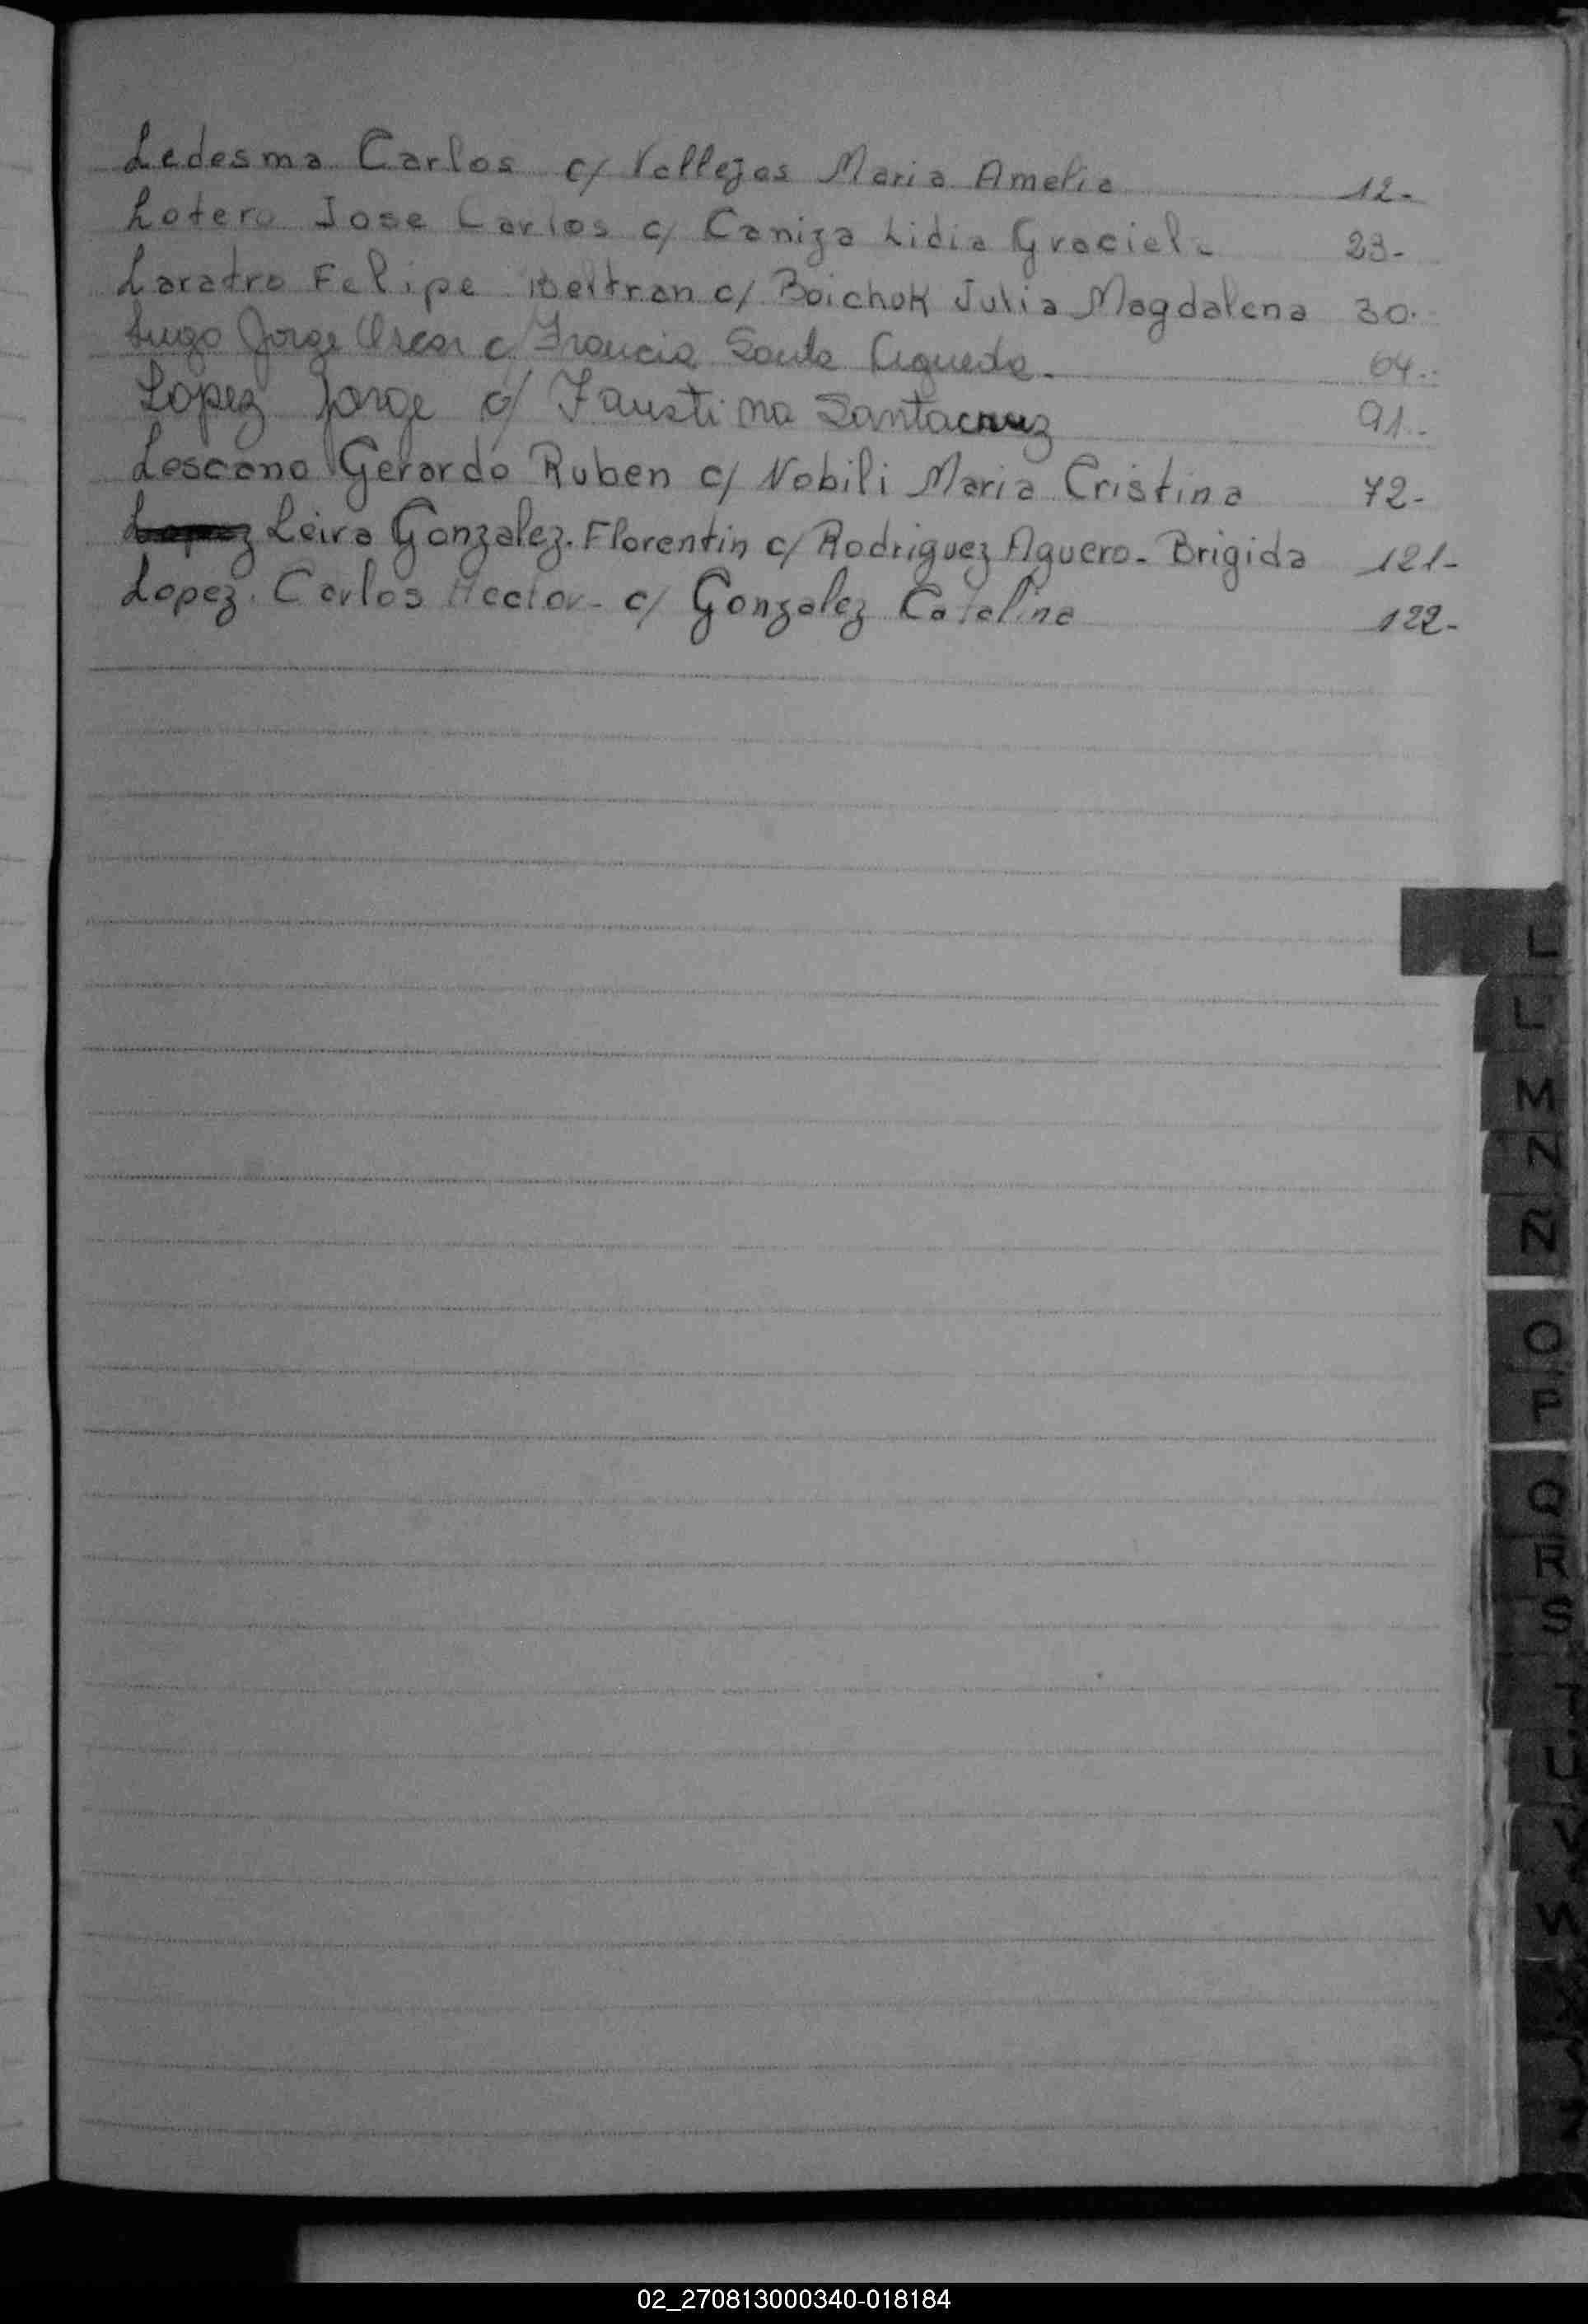 Ledesma Carlos c/ Vallejos Maria Amelia 12-
Lotero Jose Carlos c/ Caniza Lidia Graciela 23-
Laratro Felipe Beltran c/ Boichok Julia Magdalena 30-
Lugo Jorge Oscar c/ Francia Santa Agueda. 64-
Lopez Jorge c/ Faustina Santacruz 91-
Lescano Gerardo Ruben c/ Nobili Maria Cristina 72-
Lopez Leiva Gonzalez. Florentin c/ Rodriguez Aguero- Brigida 121-
Lopez. Carlos Hector- c/ Gonzalez Catalina 122-
L
L
M
N
N
O
P
Q
R
S
T
U
V
W
02_270813000340-018184